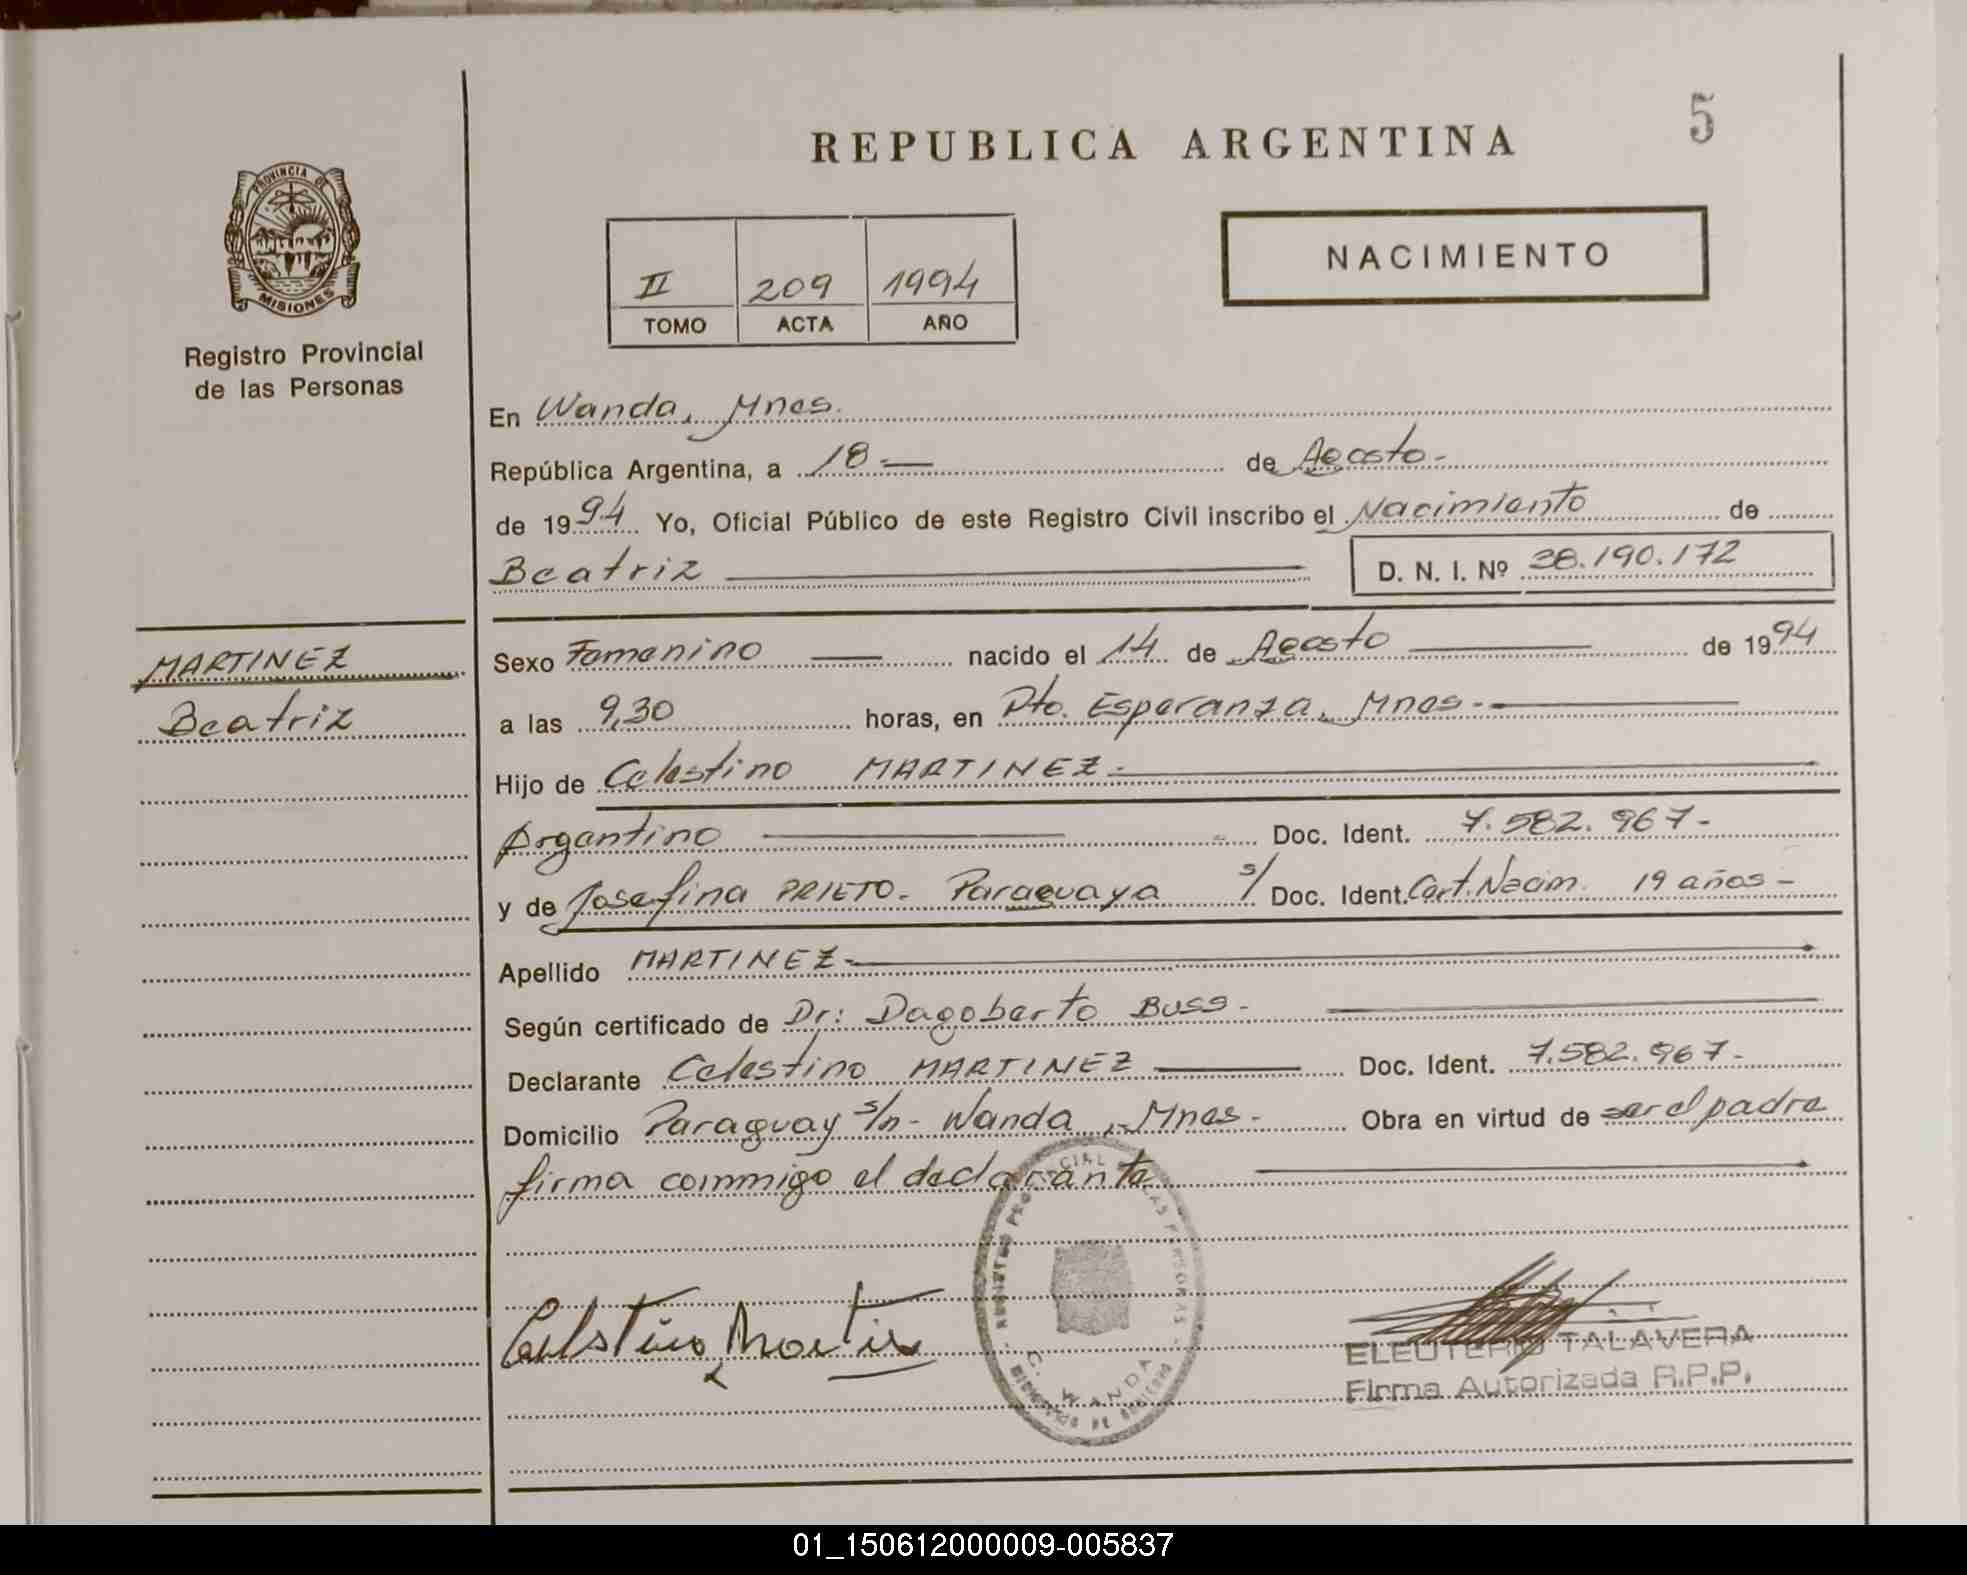 5
REPUBLICA ARGENTINA
PROVINCIA DE
MISIONES
Registro Provincial
de las Personas
II 209 1994
TOMO ACTA AÑO
NACIMIENTO
En Wanda, Mnes.
República Argentina, a 18 — de Agosto -
de 1994 Yo, Oficial Público de este Registro Civil inscribo el Nacimiento de
Beatriz D. N. I. Nº 38.190.172
MARTINEZ
Beatriz
Sexo Femenino — nacido el 14 de Agosto — de 1994
a las 9,30 horas, en Pto. Esperanza, Mnes -
Hijo de Celestino MARTINEZ -
Argentino — Doc. Ident. 7.582.967 -
y de Josefina PRIETO - Paraguaya s/ Doc. Ident. Cert. Nacim. 19 años -
Apellido MARTINEZ -
Según certificado de Dr: Dagoberto Buss -
Declarante Celestino MARTINEZ — Doc. Ident. 7.582.967 -
Domicilio Paraguay s/n - Wanda, Mnes - Obra en virtud de ser el padre
firma commigo el declarante
Celestino Martin
ELEUTERIO TALAVERA
Firma Autorizada R.P.P.
WANDA
01_150612000009-005837